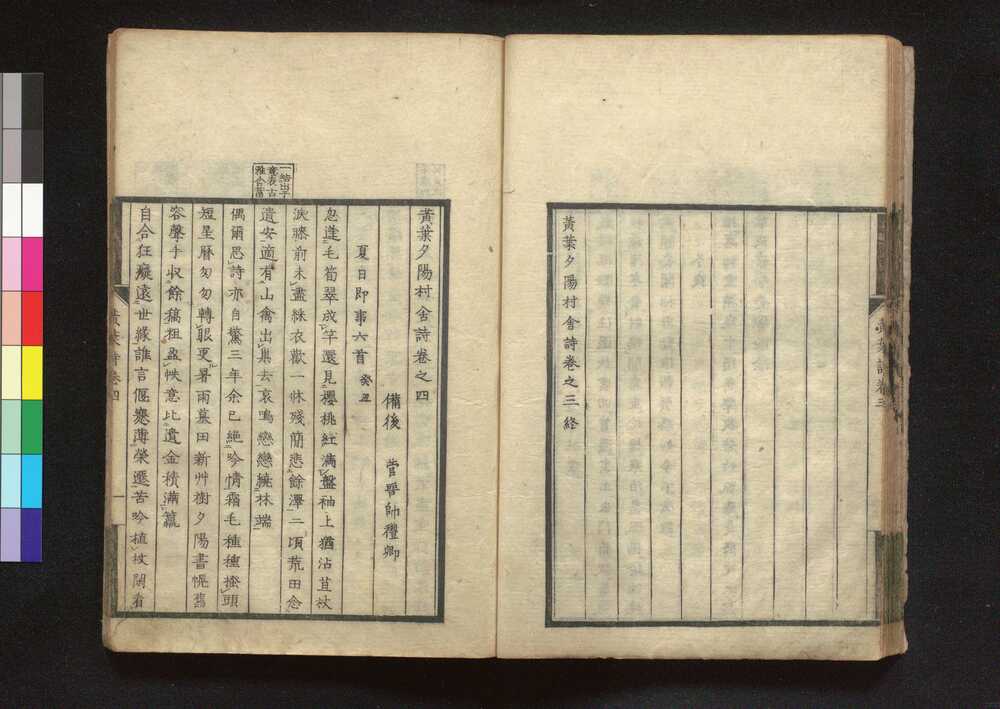 黃葉夕陽村舍詩卷之三終
黃葉夕陽村舍詩卷之四
備後 菅晉帥禮卿
夏日即事六首 癸丑
忽逢毛筍翠成竿還見櫻桃紅滿盤袖上猶沾苴杖
淚滕前未盡綵衣歡一牀殘簡悲餘澤二頃荒田念
遺安適有山禽出巢去哀鳴戀戀繞林端
偶爾忌詩亦自驚三年余已絕吟情霜毛種種搔頭
短星曆匆匆轉眼更暑雨墓田新艸樹夕陽書幌舊
容聲手收餘稿粗盈帙意比遺金積滿籯
自合狂癡遠世緣誰言偃蹇薄榮遷苦吟植杖閑看
黃葉詩卷四
一